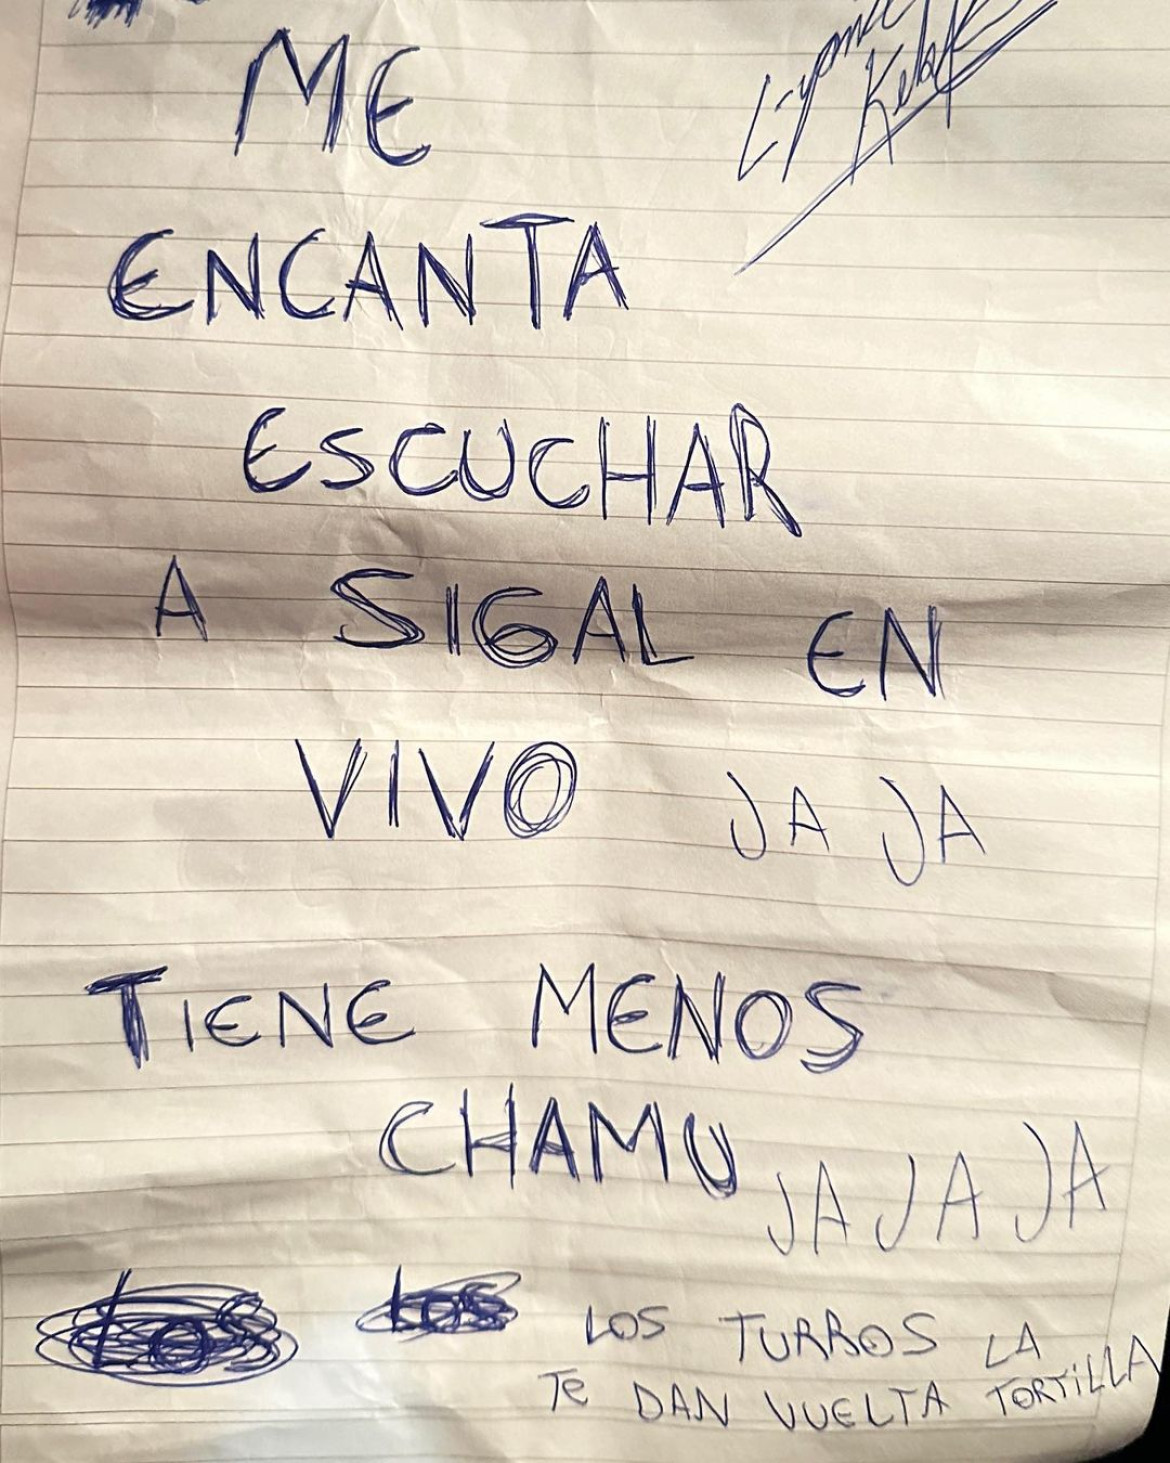 ME
ENCANTA
ESCUCHAR
A SIGAL EN
VIVO JA JA
TIENE MENOS
CHAMU JA JA JA
LOS LOS LOS TURROS LA
Te DAN VUELTA TORTILLA